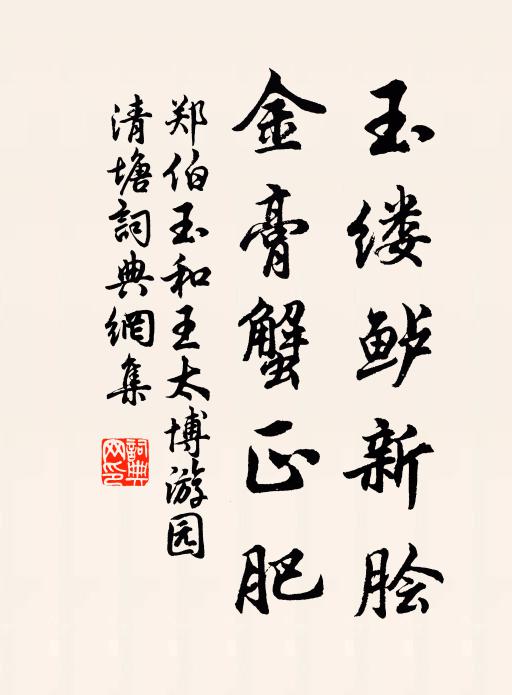 玉缕鲈新脍
金膏蟹正肥
郑伯玉和王太博游园
清塘詞典網集
詞典
网印